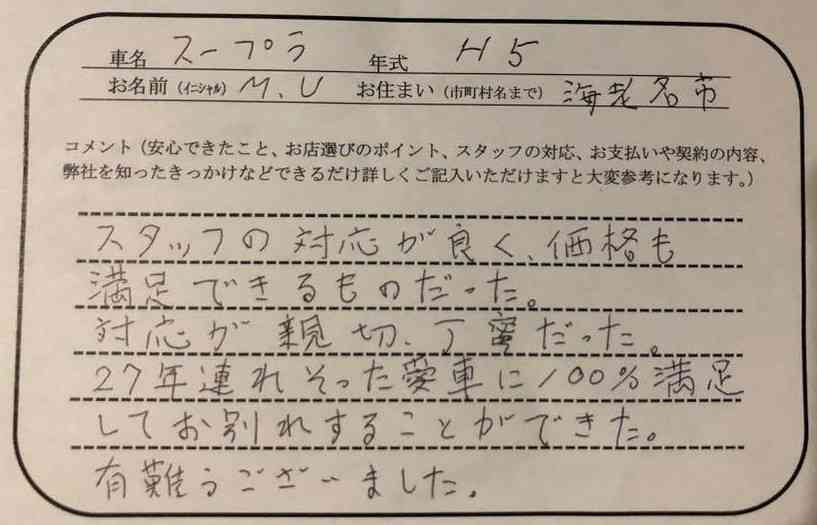 車名 スープラ 年式 H5
お名前（イニシャル） M.U お住まい（市町村名まで） 海老名市
コメント（安心できたこと、お店選びのポイント、スタッフの対応、お支払いや契約の内容、
弊社を知ったきっかけなどできるだけ詳しくご記入いただけますと大変参考になります。）
スタッフの対応が良く、価格も
満足できるものだった。
対応が親切、丁蜜だった。
27年連れそった愛車に100%満足
してお別れすることができた。
有難うございました。